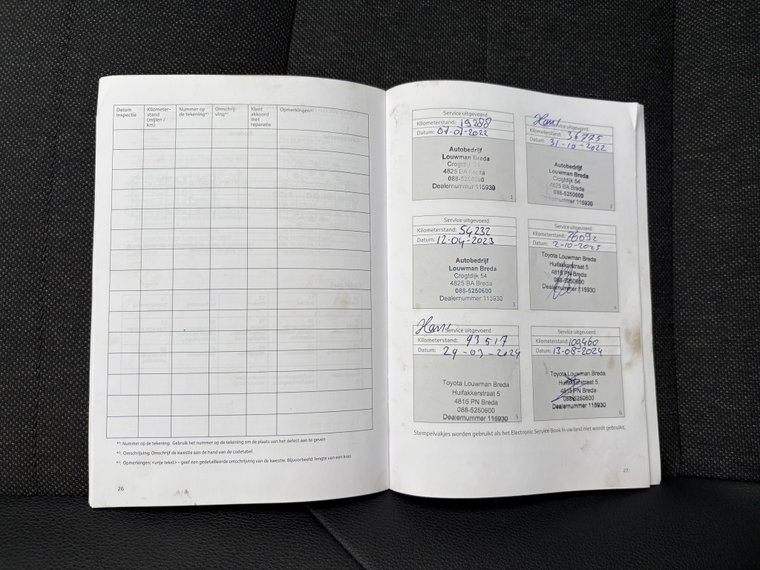 Datum inspectie
Kilometer-stand (mijlen / km)
Nummer op de tekening*¹)
Omschrij-ving*²)
Klant akkoord met reparatie
Opmerkingen*³)
*¹: Nummer op de tekening: Gebruik het nummer op de tekening om de plaats van het defect aan te geven
*²: Omschrijving: Omschrijf de kwestie aan de hand van de codetabel
*³: Opmerkingen: <vrije tekst> - geef een gedetailleerde omschrijving van de kwestie. Bijvoorbeeld: lengte van een kras
26
Service uitgevoerd
Kilometerstand: 19388
Datum: 07-01-2022
Autobedrijf
Louwman Breda
Crogtdijk 54
4825 BA Breda
088-5250600
Dealernummer 115930
1
Hans
Service uitgevoerd
Kilometerstand: 36775
Datum: 31-10-2022
Autobedrijf
Louwman Breda
Crogtdijk 54
4825 BA Breda
088-5250600
Dealernummer 115930
2
Service uitgevoerd
Kilometerstand: 54232
Datum: 12-04-2023
Autobedrijf
Louwman Breda
Crogtdijk 54
4825 BA Breda
088-5250600
Dealernummer 115930
3
Service uitgevoerd
Kilometerstand: 76092
Datum: 2-10-2023
Toyota Louwman Breda
Huifakkerstraat 5
4815 PN Breda
088-5250600
Dealernummer 115930
4
Hans
Service uitgevoerd
Kilometerstand: 93517
Datum: 29-03-2024
Toyota Louwman Breda
Huifakkerstraat 5
4815 PN Breda
088-5250600
Dealernummer 115930
5
Service uitgevoerd
Kilometerstand: 109460
Datum: 13-08-2024
Toyota Louwman Breda
Huifakkerstraat 5
4815 PN Breda
088-5250600
Dealernummer 115930
6
Stempelvakjes worden gebruikt als het Electronic Service Book in uw land niet wordt gebruikt.
27